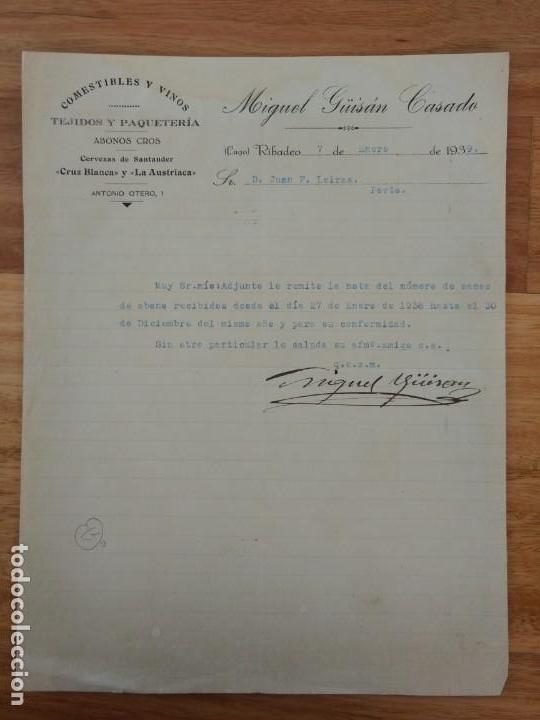 COMESTIBLES Y VINOS
TEJIDOS Y PAQUETERÍA
ABONOS CROS
Cervezas de Santander
«Cruz Blanca» y «La Austriaca»
ANTONIO OTERO, 1
Miguel Güisán Casado
(Lugo) Ribadeo 7 de Enero de 1939.
Sr. D. Juan F. Leiras.
Porto.
Muy Sr.mío:Adjunto le remito la nota del número de sacos
de abono recibidos desde el día 27 de Enero de 1938 hasta el 30
de Diciembre del mismo año y para su conformidad.
Sin otro particular le saluda su afmo.amigo s.s.
q.e.s.m.
Miguel Güisán
todocoleccion